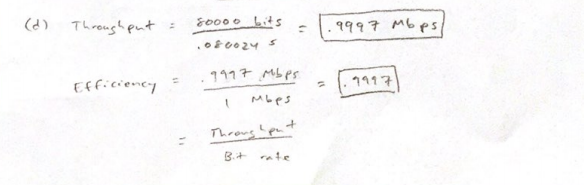 (d) Throughput = 80000 bits / .080024 s = .9997 Mbps
Efficiency = .9997 Mbps / 1 Mbps = .9997
= Throughput / Bit rate